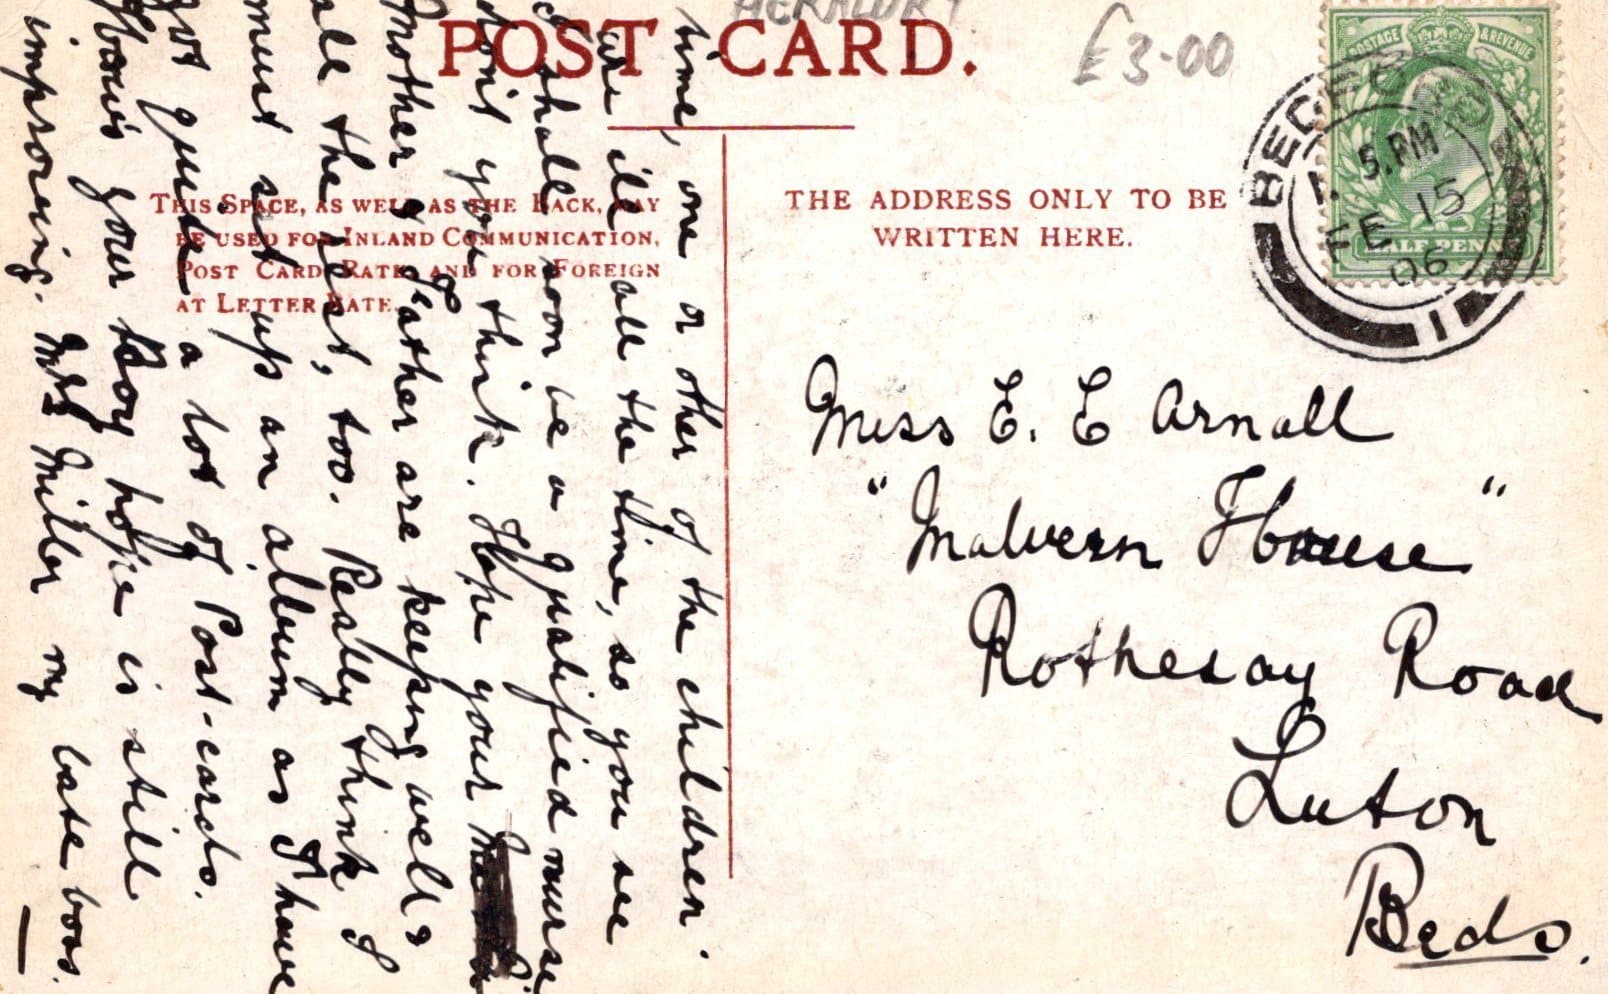 HERALDRY
£3.00
POST CARD.
POSTAGE & REVENUE
HALF PENNY
BEDFORD
5.PM
FE 15
06
1
THIS SPACE, AS WELL AS THE BACK, MAY
BE USED FOR INLAND COMMUNICATION,
POST CARD RATE, AND FOR FOREIGN
AT LETTER RATE.
THE ADDRESS ONLY TO BE
WRITTEN HERE.
time, one or other of the children.
are ill all the time, so you see
I shall soon be a qualified nurse
don't you think. Hope your
Mother & Father are keeping well &
all the rest, too. Really think I
must set up an album as I have
got quite a lot of Post-cards.
How's your Boy hope is still
improving. Mrs Miller my late boss.
Miss E. E Arnall
"Malvern House"
Rothesay Road
Luton
Beds.